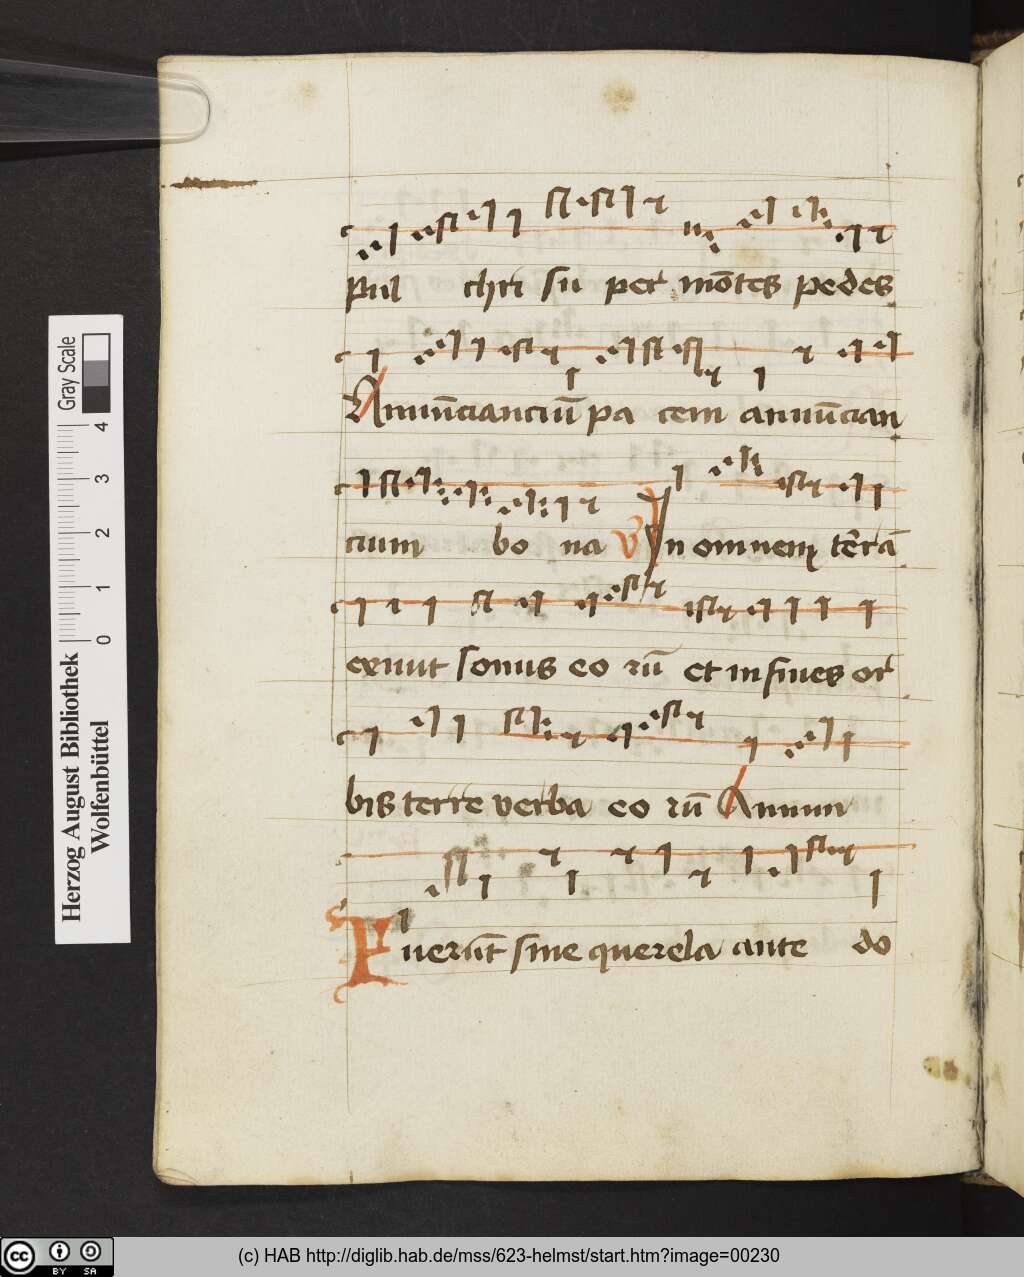 Pul chri su per mōtes pedes
Annūcianciū pa cem annūcian
cium bo na V In omnem terrā
exiuit sonus eo rū et in fines or
bis terre verba eo rū Annun
Fuerūt sine querela ante do
Herzog August Bibliothek
Wolfenbüttel
0 1 2 3 4
Gray Scale
cc BY SA
(c) HAB http://diglib.hab.de/mss/623-helmst/start.htm?image=00230